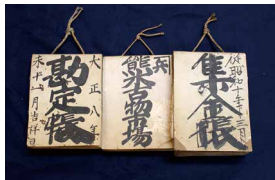 大正八年
勘定帳
未平一月吉祥日
兵
熊谷古物市場
昭和十三年三月
集金帳